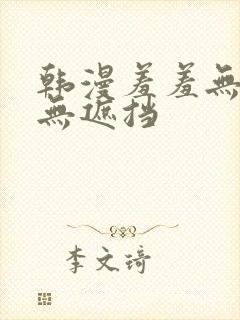 韩漫羞羞無
無遮挡
李文琦